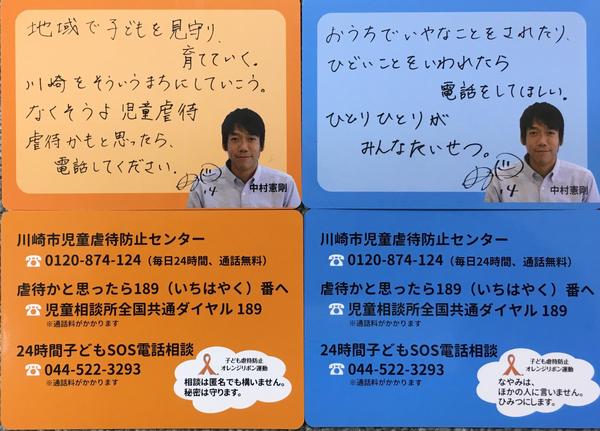 地域で子どもを見守り、
育てていく。
川崎をそういうまちにしていこう。
なくそうよ児童虐待
虐待かもと思ったら、
電話してください.
'14
中村憲剛
おうちでいやなことをされたり、
ひどいことをいわれたら
電話をしてほしい。
ひとりひとりが
みんなたいせつ。
'14
中村憲剛
川崎市児童虐待防止センター
☎ 0120-874-124（毎日24時間、通話無料）
虐待かと思ったら189（いちはやく）番へ
☎ 児童相談所全国共通ダイヤル 189
※通話料がかかります
24時間子どもSOS電話相談
☎ 044-522-3293
※通話料がかかります
子ども虐待防止
オレンジリボン運動
相談は匿名でも構いません。
秘密は守ります。
川崎市児童虐待防止センター
☎ 0120-874-124（毎日24時間、通話無料）
虐待かと思ったら189（いちはやく）番へ
☎ 児童相談所全国共通ダイヤル 189
※通話料がかかります
24時間子どもSOS電話相談
☎ 044-522-3293
※通話料がかかります
子ども虐待防止
オレンジリボン運動
なやみは、
ほかの人に言いません。
ひみつにします。